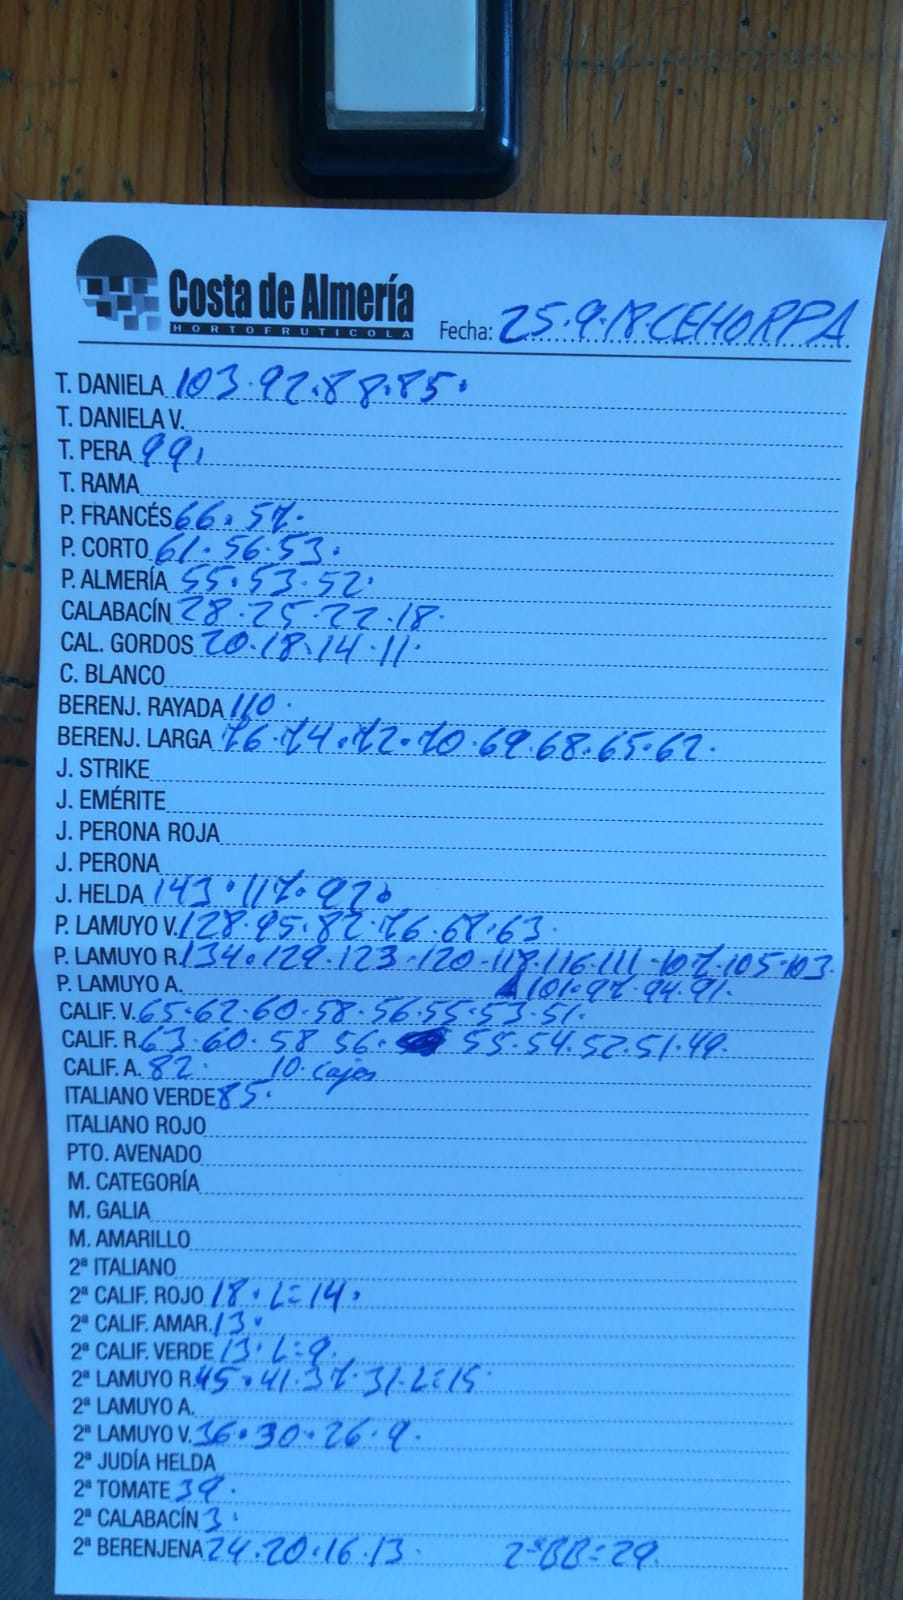 Costa de Almería
HORTOFRUTICOLA
Fecha: 25.9.18.CEHORPA
T. DANIELA 103.92.88.85.
T. DANIELA V.
T. PERA 99.
T. RAMA
P. FRANCÉS 66.57.
P. CORTO 61.56.53.
P. ALMERÍA 55.53.52.
CALABACÍN 28.25.22.18.
CAL. GORDOS 20.18.14.11.
C. BLANCO
BERENJ. RAYADA 110.
BERENJ. LARGA 76.74.72.70.69.68.65.62.
J. STRIKE
J. EMÉRITE
J. PERONA ROJA
J. PERONA
J. HELDA 143.117.92.
P. LAMUYO V. 128.95.82.76.68.63.
P. LAMUYO R. 134.129.123.120.118.116.111.107.105.103.
P. LAMUYO A. 101.97.94.91.
CALIF. V. 65.62.60.58.56.55.53.51.
CALIF. R. 63.60.58.56. 55.54.52.51.49.
CALIF. A. 82. 10. cajas
ITALIANO VERDE 85.
ITALIANO ROJO
PTO. AVENADO
M. CATEGORÍA
M. GALIA
M. AMARILLO
2ª ITALIANO
2ª CALIF. ROJO 18. L=14.
2ª CALIF. AMAR. 13.
2ª CALIF. VERDE 13. L=9.
2ª LAMUYO R. 45.41.37.31.L=15.
2ª LAMUYO A.
2ª LAMUYO V. 36.30.26.9.
2ª JUDÍA HELDA
2ª TOMATE 39.
2ª CALABACÍN 3.
2ª BERENJENA 24.20.16.13. 2ªBB=29.